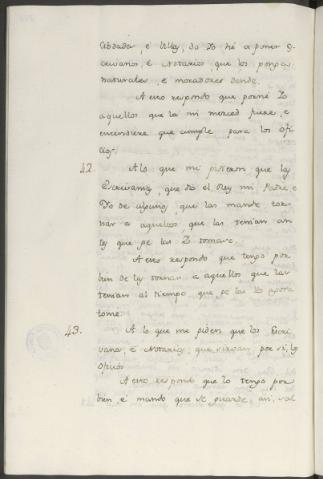 Cibdades, é Villas, do Yo hé a poner Es-
crivanos, é Notarios, que los ponga
naturales, é moradores dende.
A esto respondo que porné Yo
aquellos que la mi merced fuere, e
entendiere que cumple para los ofi-
cios.
42. A lo que me pidieron que las
Escrivanias, que dió el Rey mi Padre, e
Yo de algunos, que las mande tor-
nar a aquellos, que las tenian an-
tes que se las Yo tomase.
A esto respondo que tengo por
bien de las tornar a aquellos que las
tenian al tiempo que se las Yo
tomé.
43. A lo que me piden que los Escri-
vanos, é Notarios, que sirvan por sí, los
oficios
A esto respondo que lo tengo por
bien, é mando que se guarde, asi, sal